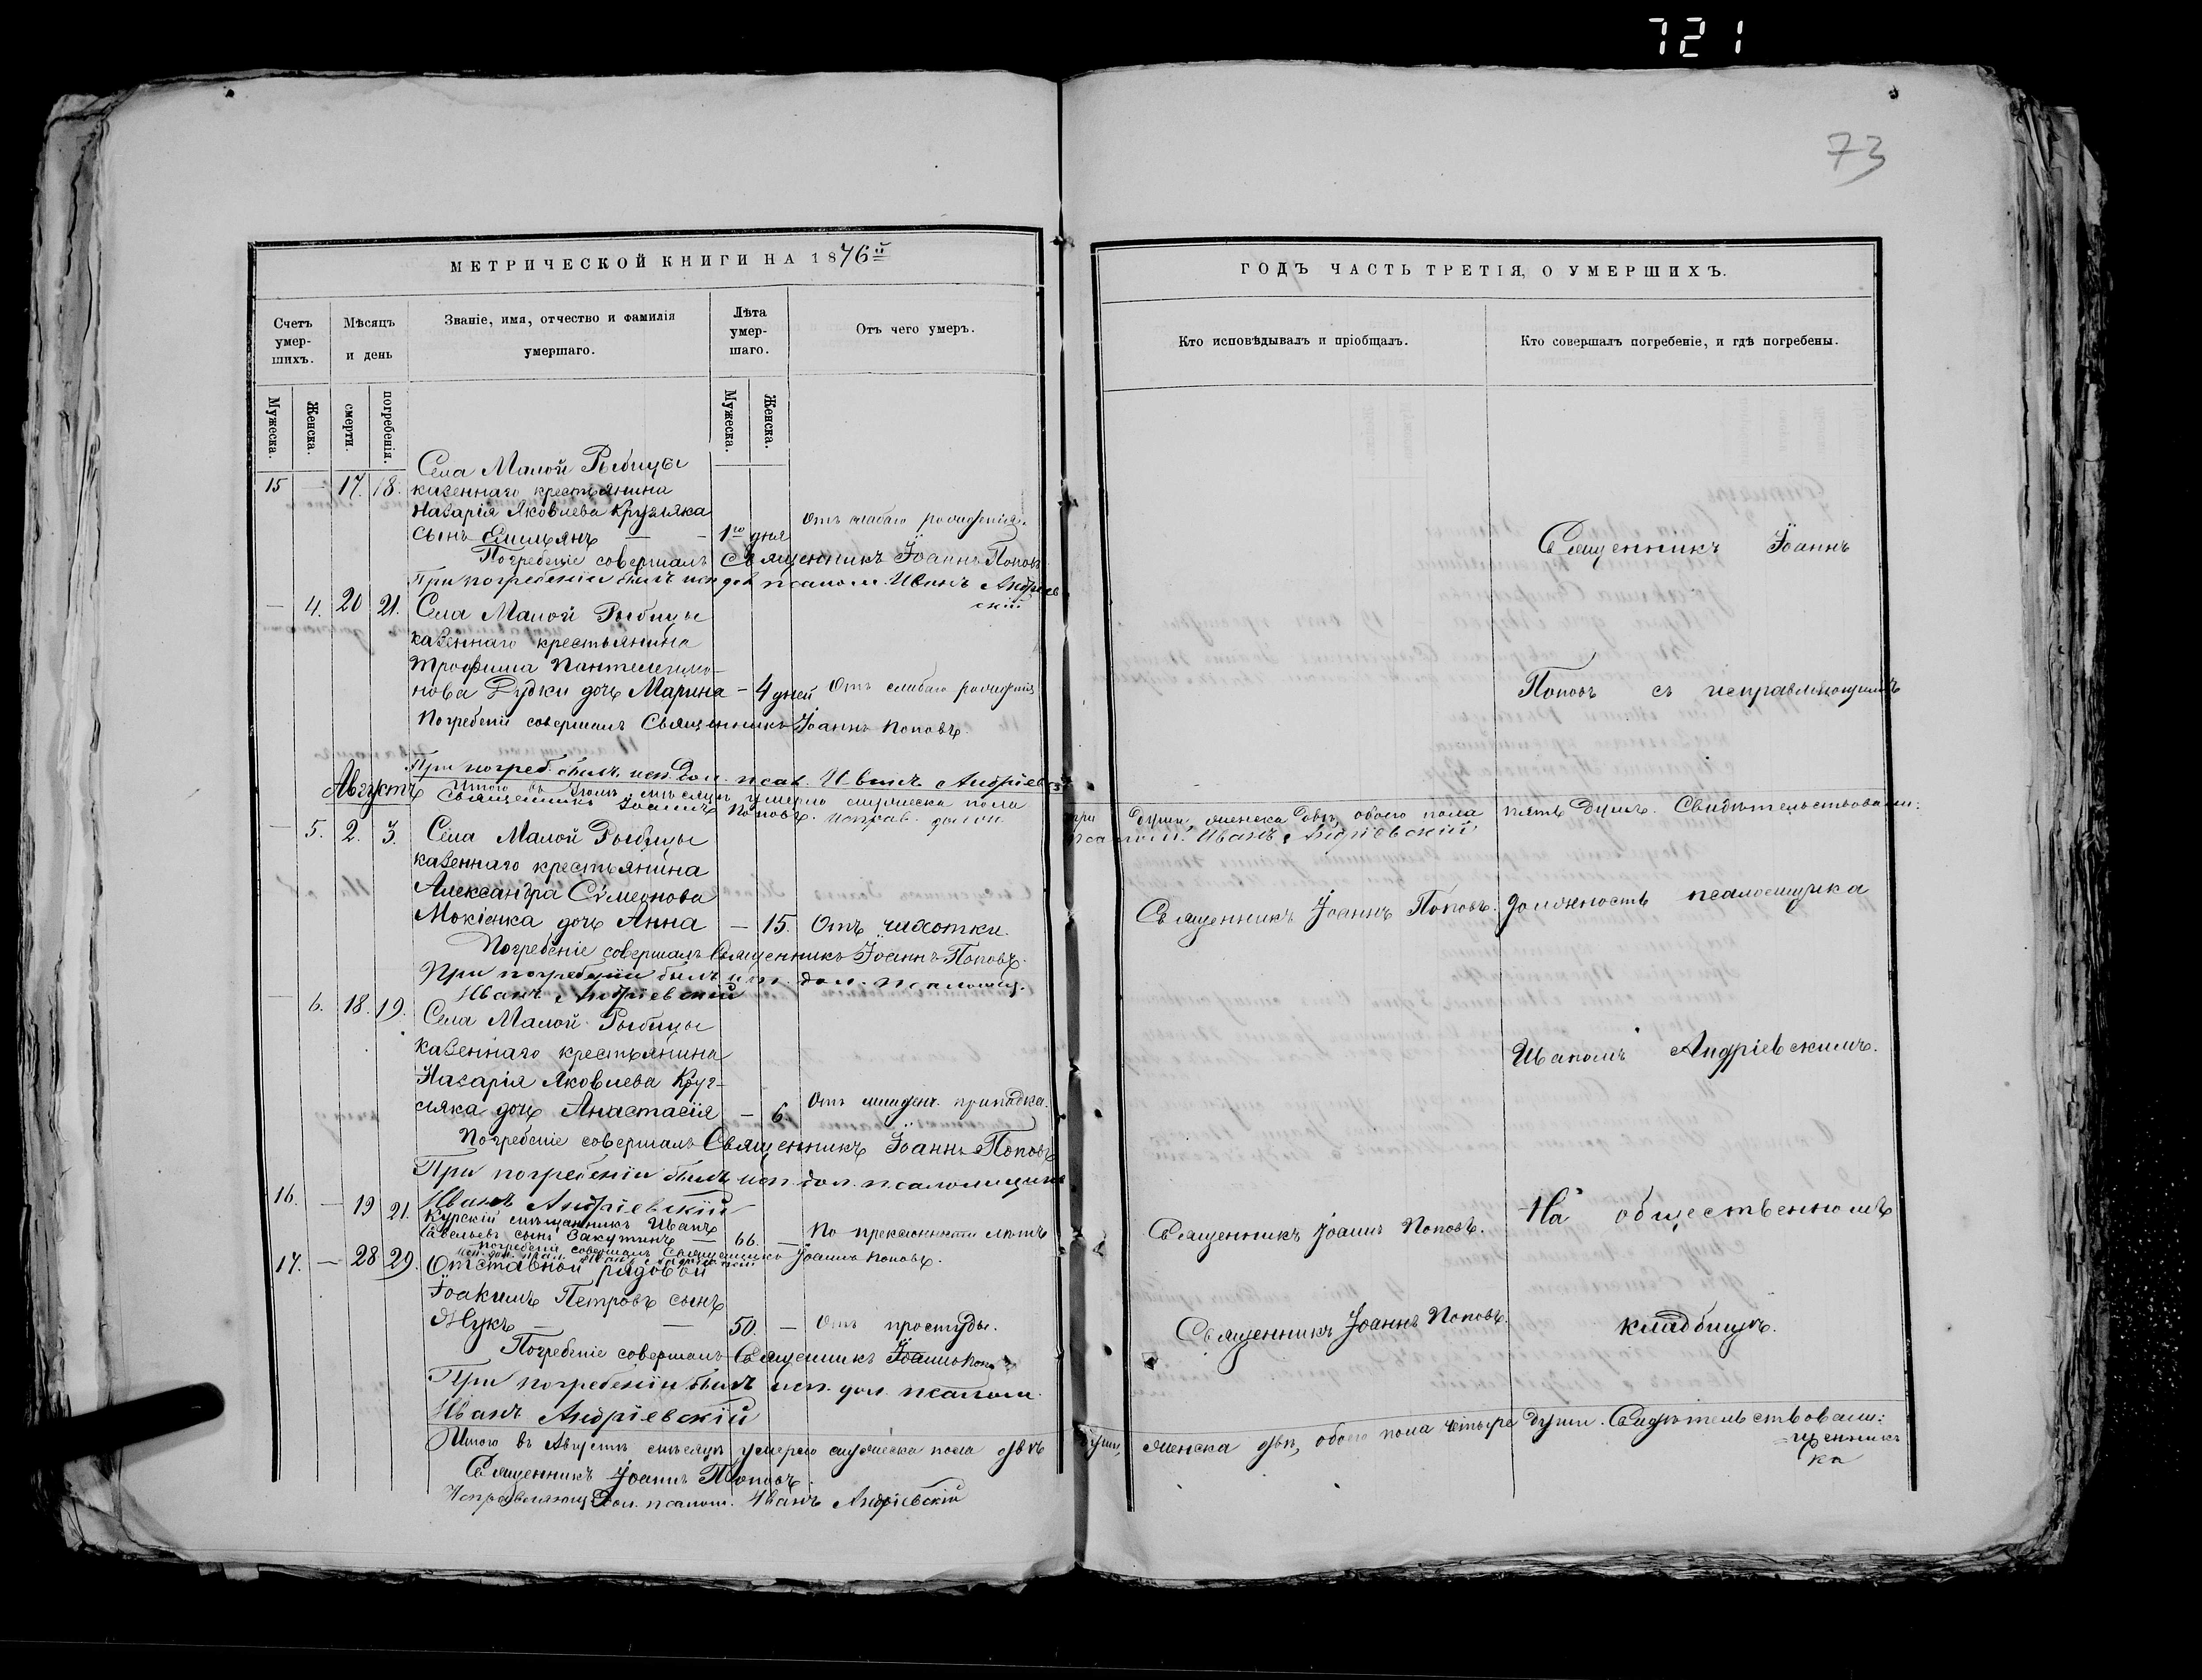 721
73
МЕТРИЧЕСКОЙ КНИГИ НА 1876й
Счетъ умер-шихъ.
Мѣсяцъ и день
Званіе, имя, отчество и фамилія умершаго.
Лѣта умер-шаго.
Отъ чего умеръ.
Мужеска.
Женска.
смерти.
погребенія.
Мужеска.
Женска.
Села Малой Рыбицы
15 — 17. 18. казеннаго крестьянина
Назарія Яковлева Кругляка
сынъ — — 1го дня Отъ слабаго рожденія.
Погребеніе совершалъ Священникъ Іоаннъ Поповъ
При погребеніи былъ исп. дол. псалом. Иванъ Андріев
скій
— 4. 20 21. Села Малой Рыбицы
казеннаго крестьянина
Трофима Пантелеимо-
нова Рудки дочь Марина — 4 дней Отъ слабаго рожденія
Погребеніе совершалъ Священникъ Іоаннъ Поповъ.
При погреб. былъ исп. дол. псал. Иванъ Андріевскій
Августъ
Итого въ Іюлѣ мѣсяцѣ умерло мужеска пола
Священникъ Іоаннъ Поповъ. Исправ. должн.
— 5. 2. 3. Села Малой Рыбицы
казеннаго крестьянина
Александра Сѵмеонова
Мокіенка дочь Анна — 15. Отъ чихотки.
Погребеніе совершалъ Священникъ Іоаннъ Поповъ.
При погребеніи былъ исп. дол. псаломщ.
Иванъ Андріевскій
— 6. 18. 19. Села Малой Рыбицы
казеннаго крестьянина
Назарія Яковлева Круг-
ляка дочь Анастасія — 6. Отъ младен. припадка.
Погребеніе совершалъ Священникъ Іоаннъ Поповъ
При погребеніи былъ исп. дол. псаломщика
Иванъ Андріевскій
16. — 19 21. Курскій мѣщанинъ Иванъ
Савельевъ сынъ Закутинъ — 66. — По преклонности лѣтъ
Погребеніе совершалъ Священникъ Іоаннъ Поповъ.
17. — 28 29. Отставной рядовой
Іоакимъ Петровъ сынъ
Жукъ — — 50. — Отъ простуды.
Погребеніе совершалъ Священникъ Іоаннъ Поповъ
При погребеніи былъ исп. дол. псалом.
Иванъ Андріевскій
Итого въ Августѣ мѣсяцѣ умерло мужеска пола двѣ
Священникъ Іоаннъ Поповъ.
Исправляющ. дол. псалом. Иванъ Андріевскій
ГОДЪ ЧАСТЬ ТРЕТІЯ, О УМЕРШИХЪ.
Кто исповѣдывалъ и пріобщалъ.
Кто совершалъ погребеніе, и гдѣ погребены.
Священникъ Іоаннъ
Поповъ съ исправляющимъ
три души, женска двѣ, обоего пола пять душъ. Свидѣтельствовали:
псалом. Иванъ Андріевскій
Священникъ Іоаннъ Поповъ. должность псаломщика
Иваномъ Андріевскимъ.
Священникъ Іоаннъ Поповъ. На общественномъ
Священникъ Іоаннъ Поповъ. кладбищѣ.
души, женска двѣ, обоего пола четыре души. Свидѣтельствовали: